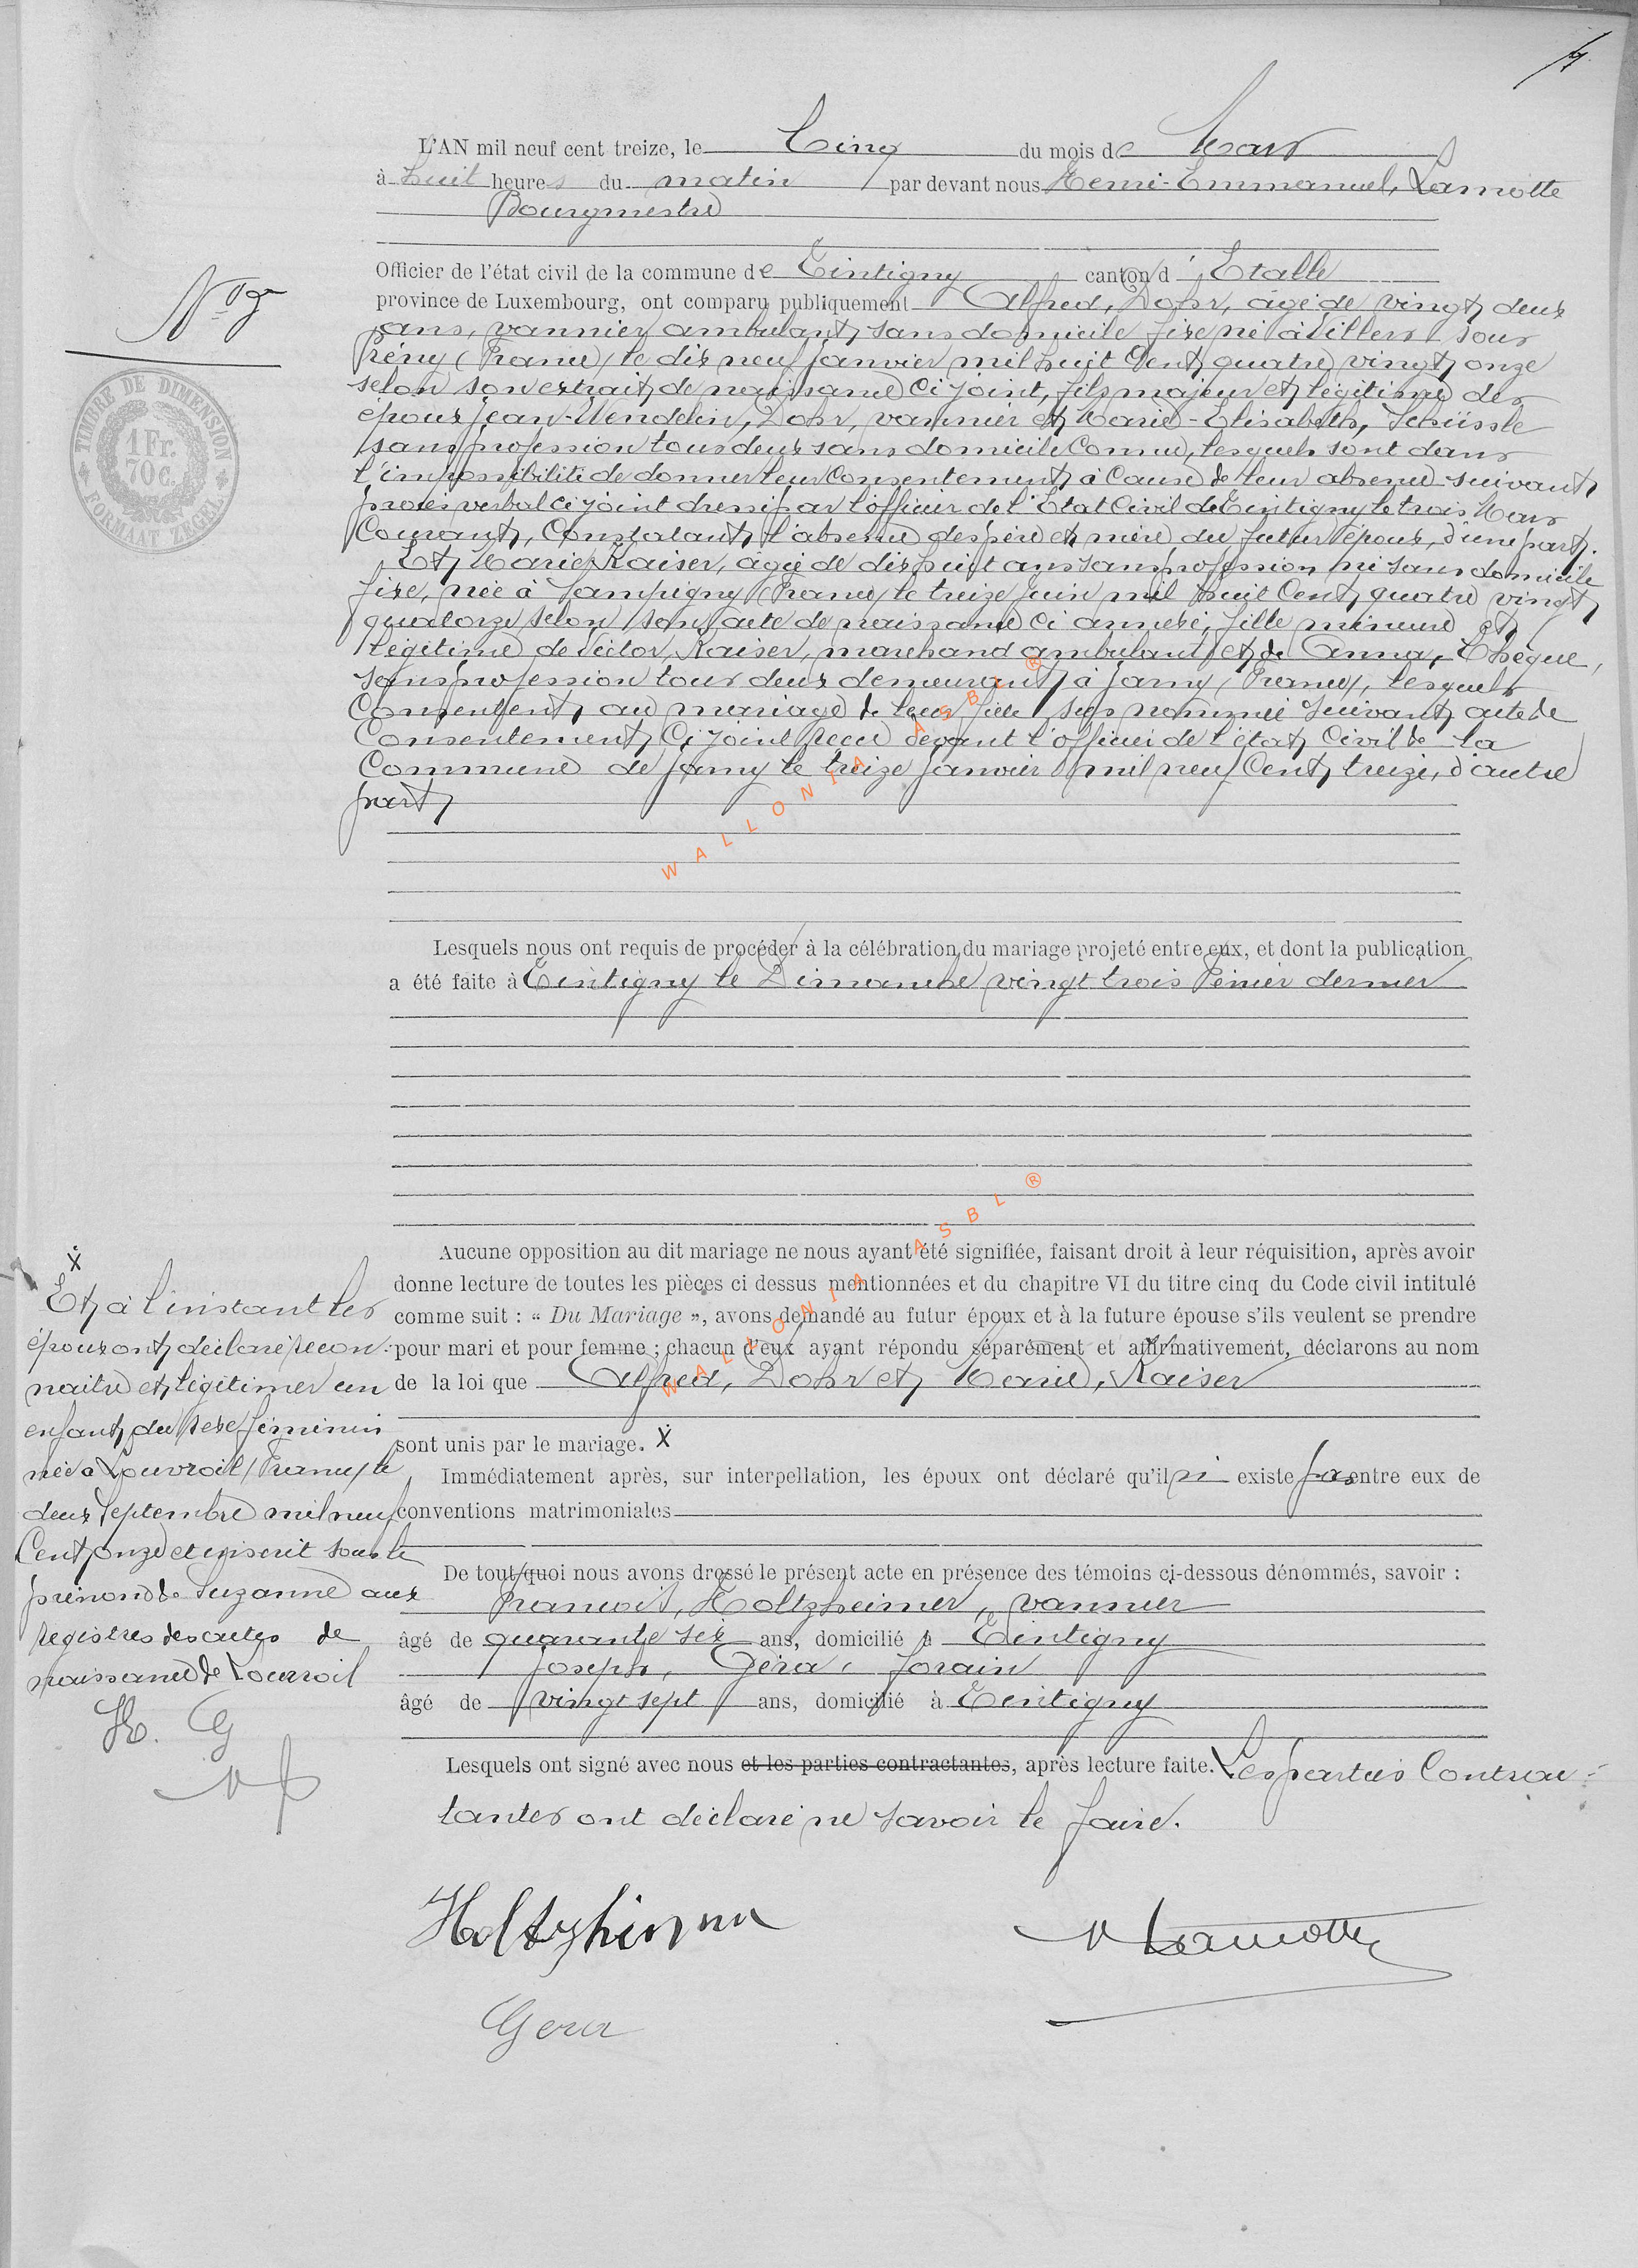 L'AN mil neuf cent treize, le Cinq du mois de Mars
à huit heures du matin par devant nous Henri-Emmanuel, Lamotte
Bourgmestre
Officier de l'état civil de la commune de Tintigny canton d'Etalle
province de Luxembourg, ont comparu publiquement Alfred, Dohr, âgé de vingt deux
ans, vannier ambulant, sans domicile fixe né à Villers sous
Prény (France) le dix neuf janvier mil huit cent quatre vingt onze
selon son extrait de naissance ci joint, fils majeur et légitime des
époux Jean-Wendelin, Dohr, vannier et Marie-Elisabeth, Schüssle
sans profession tous deux sans domicile connu, lesquels sont dans
l'impossibilité de donner leur consentement à cause de leur absence suivant
procès verbal ci joint dressé par l'officier de l'Etat Civil de Tintigny le trois Mars
courant, constatant l'absence des père et mère du futur époux, d'une part.
Et Marie Kaiser, âgée de dix huit ans sans profession ni sans domicile
fixe, née à Sampigny (France) le treize juin mil huit cent quatre vingt
quatorze selon son acte de naissance ci annexé, fille mineure et
légitime de Victor, Kaiser, marchand ambulant et de Anna, Thègue,
sans profession tous deux demeurant à Jarny (France), lesquels
consentent au mariage de leur fille sus nommée suivant acte de
consentement ci joint reçu devant l'officier de l'état civil de la
commune de Jarny le treize janvier mil neuf cent treize, d'autre
part
Lesquels nous ont requis de procéder à la célébration du mariage projeté entre eux, et dont la publication
a été faite à Tintigny le Dimanche vingt trois Février dernier
Aucune opposition au dit mariage ne nous ayant été signifiée, faisant droit à leur réquisition, après avoir
donne lecture de toutes les pièces ci dessus mentionnées et du chapitre VI du titre cinq du Code civil intitulé
comme suit : « Du Mariage », avons demandé au futur époux et à la future épouse s'ils veulent se prendre
pour mari et pour femme ; chacun d'eux ayant répondu séparément et affirmativement, déclarons au nom
de la loi que Alfred, Dohr et Marie, Kaiser
sont unis par le mariage. X
Immédiatement après, sur interpellation, les époux ont déclaré qu'il n'existe pas entre eux de
conventions matrimoniales
De tout quoi nous avons dressé le présent acte en présence des témoins ci-dessous dénommés, savoir :
François, Holtzheimer, vannier
âgé de quarante six ans, domicilié à Tintigny
Joseph, Géra, forain
âgé de vingt sept ans, domicilié à Tintigny
Lesquels ont signé avec nous et les parties contractantes, après lecture faite. Les parties contrac-
tantes ont déclaré ne savoir le faire.
Lamotte
Gera
N° 9
TIMBRE DE DIMENSION
1 Fr.
70 c.
FORMAAT ZEGEL
X
Et à l'instant les
époux ont déclaré recon-
naître et légitimer un
enfant du sexe féminin
née à Louvroil (France) le
deux septembre mil neuf
cent onze et inscrit sous le
prénom de Suzanne aux
registres des actes de
naissance de Louvroil
H. G
WALLONIA ASBL ®
WALLONIA ASBL ®